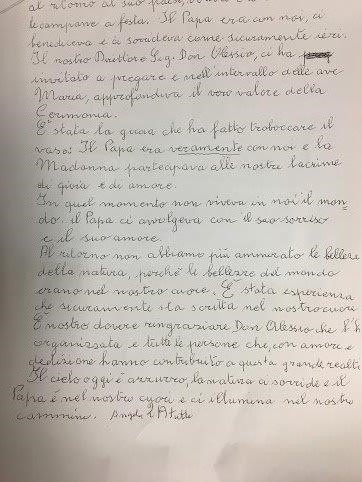 al ritorno al suo paese,
le campane a festa. Il Papa era con noi, ci
benediceva e ci sorrideva come sicuramente ieri.
Il nostro Direttore Sig. Don Alessio, ci ha
invitato a pregare e nell'intervallo delle ave
Maria, approfondiva il vero valore della
Cerimonia.
E' stata la goccia che ha fatto traboccare il
vaso: Il Papa era veramente con noi e la
Madonna partecipava alle nostre lacrime
di gioia e di amore.
In quel momento non viveva in noi il mon-
do. il Papa ci avvolgeva con il suo sorriso
e il suo amore.
Al ritorno non abbiamo più ammirato le bellezze
della natura, perché le bellezze del mondo
erano nel nostro cuore. E' stata esperienza
che sicuramente sta scritta nel nostro cuore
E' nostro dovere ringraziare Don Alessio che l'h
organizzata e tutte le persone che, con amore e
dedizione hanno contribuito a questa grande realt
Il cielo oggi è azzurro, la natura ci sorride e il
Papa è nel nostro cuori e ci illumina nel nostro
cammino. Angela